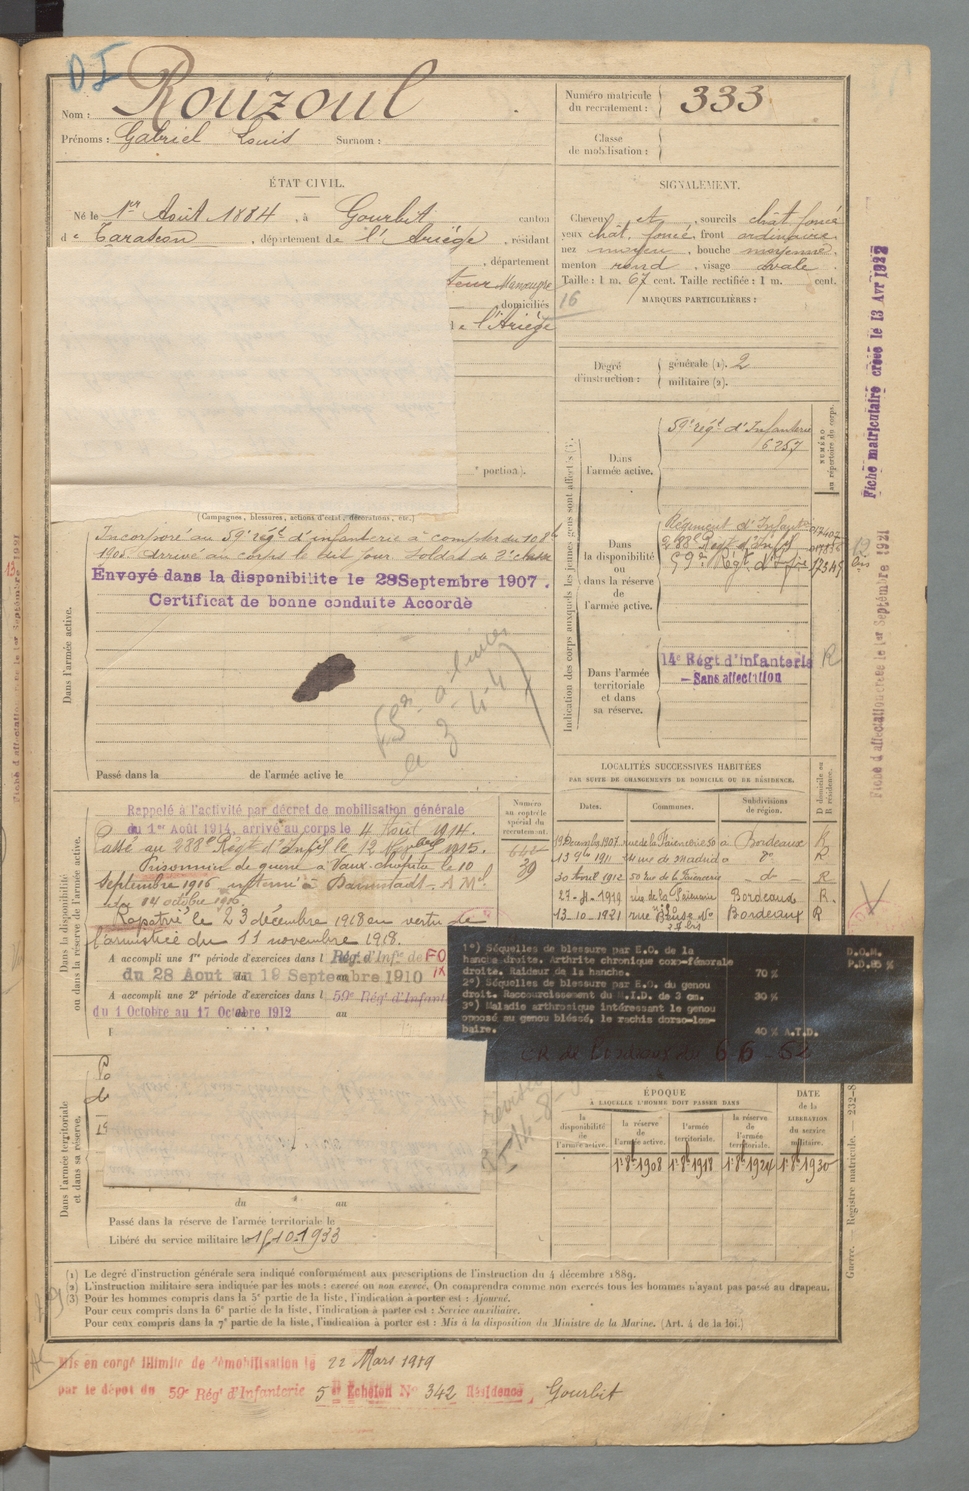 D I
Nom : Rouzoul
Prénoms : Gabriel Louis Surnom :
Numéro matricule du recrutement : 333
Classe de mobilisation :
ÉTAT CIVIL.
Né le 1er Août 1884, à Gourbit canton
de Tarascon, département de l'Ariège, résidant
, département
teur Manœuvre
, domiciliés
d e l'Ariège
portion).
SIGNALEMENT.
Cheveux et , sourcils chât. foncé
yeux chât. foncé, front ordinaire
nez moyen, bouche moyenne,
menton rond, visage ovale.
Taille : 1 m. 67 cent. Taille rectifiée : 1 m. cent.
16 MARQUES PARTICULIÈRES :
Degré d'instruction : générale (1). 2
militaire (2).
Indication des corps auxquels les jeunes gens sont affectés
NUMÉRO au répertoire du corps.
Dans l'armée active.
59e rég.t d'Infanterie
6257
Dans la disponibilité ou dans la réserve de l'armée active.
Régiment d'Infant
288e Regt d'Inf
59e Rég.t d'Inf
Dans l'armée territoriale et dans sa réserve.
14e Régt d'infanterie R
— Sans affectation
Fiche matriculaire créée le 13 Avr 1922
Fiche d'affectation créée le 1er Septembre 1921
(Campagnes, blessures, actions d'éclat, décorations, etc.)
Dans l'armée active.
Incorporé au 59e rég.t d'infanterie à compter du 10 8bre
1905. Arrivé au corps le dit jour. Soldat de 2e classe
Envoyé dans la disponibilite le 28 Septembre 1907.
Certificat de bonne conduite Accordé
Passé dans la de l'armée active le
LOCALITÉS SUCCESSIVES HABITÉES
PAR SUITE DE CHANGEMENTS DE DOMICILE OU DE RÉSIDENCE.
D domicile ou R résidence.
Dates. Communes. Subdivisions de région.
1907 50 Bordeaux R
1911 rue de Madrid do R
30 Avril 1912 50 rue de la do R
27-11-1919 rue de la Bordeaux R.
13-10-1921 rue Bordeaux R
Dans la disponibilité ou dans la réserve de l'armée active.
Numéro au contrôle spécial du recrutement.
39
Rappelé à l'activité par décret de mobilisation générale
du 1er Août 1914, arrivé au corps le 4 Août 1914.
Passé au 288e Régt d'Infie le 12 1915.
Prisonnier de guerre à Vaux-chapitre le 10
Septembre 1916 interné à Darmstadt
octobre 1916.
Rapatrié le 23 décembre 1918 en vertu de
l'armistice du 11 novembre 1918.
A accompli une 1re période d'exercices dans l Rég. d'Infie de FO
du 28 Aout au 19 Septembre 1910 IX
A accompli une 2e période d'exercices dans l 59e Rég. d'Infant
du 1 Octobre au 17 Octobre 1912 au
1°) Séquelles de blessure par E.O. de la
hanche droite. Arthrite chronique coxo-fémorale
droite. Raideur de la hanche. 70 %
2°) Séquelles de blessure par E.O. du genou
droit. Raccourcissement du M.I.D. de 3 cm. 30 %
3°) Maladie arthrosique intéressant le genou
opposé au genou bléssé, le rachis dorso-lom-
baire. 40 % A.T.D.
D.O.M.
P.D.85 %
CR de Bordeaux du 6-6-52
Dans l'armée territoriale et dans sa réserve.
du au
Passé dans la réserve de l'armée territoriale le
Libéré du service militaire le 15-10-1933
ÉPOQUE
À LAQUELLE L'HOMME DOIT PASSER DANS
DATE de la LIBÉRATION du service militaire.
la disponibilité de l'armée active.
la réserve de l'armée active.
l'armée territoriale.
la réserve de l'armée territoriale.
1er 8bre 1908 1er 8bre 1918 1er 8bre 1924 1er 8bre 1930
Guerre. — Registre matricule. — 232-8
(1) Le degré d'instruction générale sera indiqué conformément aux prescriptions de l'instruction du 4 décembre 1889.
(2) L'instruction militaire sera indiquée par les mots : exercé ou non exercé. On comprendra comme non exercés tous les hommes n'ayant pas passé au drapeau.
(3) Pour les hommes compris dans la 5e partie de la liste, l'indication à porter est : Ajourné.
Pour ceux compris dans la 6e partie de la liste, l'indication à porter est : Service auxiliaire.
Pour ceux compris dans la 7e partie de la liste, l'indication à porter est : Mis à la disposition du Ministre de la Marine. (Art. 4 de la loi.)
Mis en congé illimité de démobilisation le 22 Mars 1919
par le dépot du 59e Rég.t d'Infanterie 5e Echelon No 342 Résidence, Gourbit